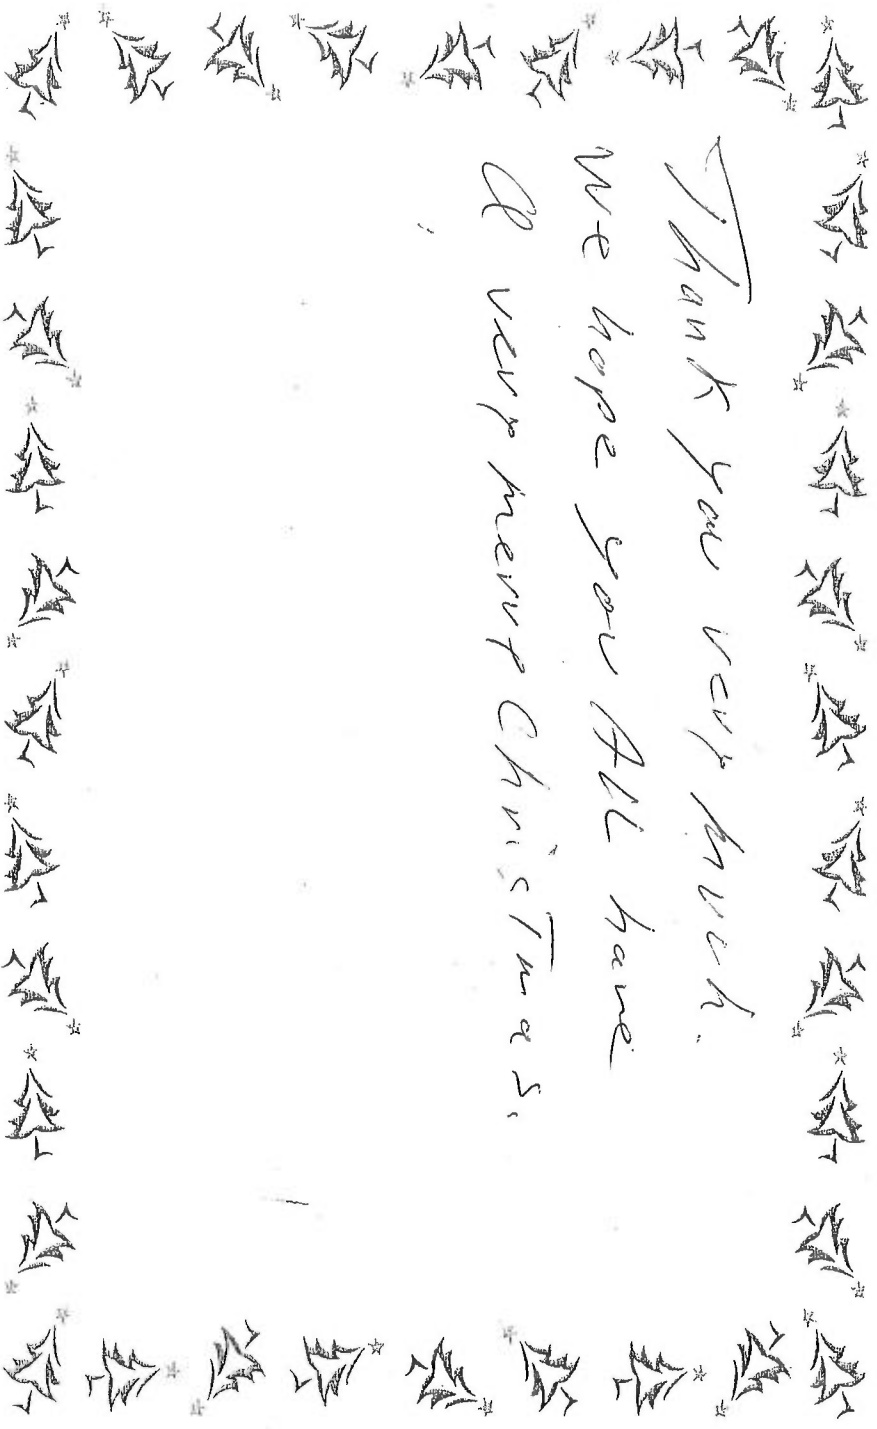 Thank you very much.
We hope you All have
a very merry Christmas.